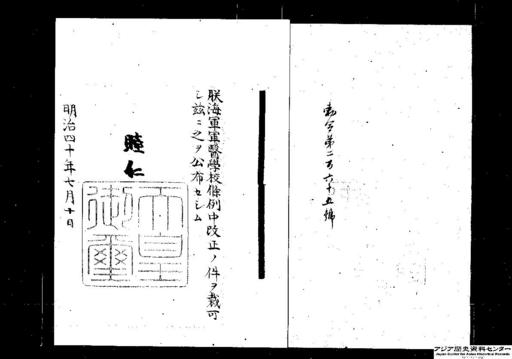 勅令第二百六十五號
朕海軍軍醫學校條例中改正ノ件ヲ裁可
シ玆ニ之ヲ公布セシム
睦仁
天皇
御璽
明治四十年七月十日
アジア歴史資料センター
Japan Center for Asian Historical Records